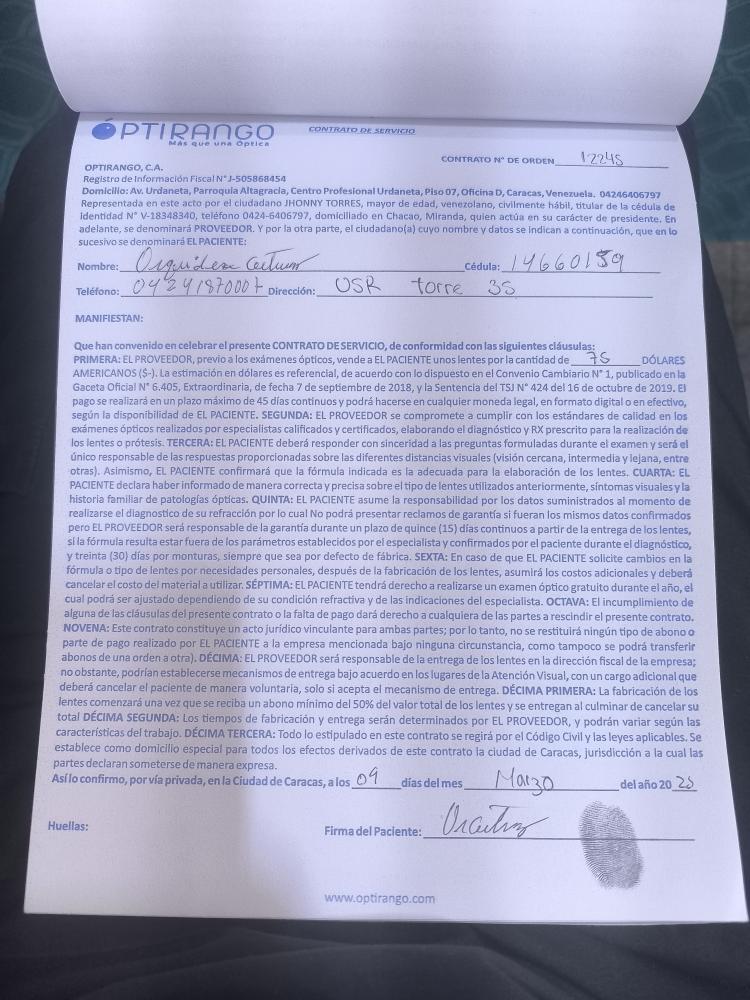 ÓPTIRANGO
Más que una Óptica
CONTRATO DE SERVICIO
CONTRATO N° DE ORDEN 12245
OPTIRANGO, C.A.
Registro de Información Fiscal N° J-505868454
Domicilio: Av. Urdaneta, Parroquia Altagracia, Centro Profesional Urdaneta, Piso 07, Oficina D, Caracas, Venezuela. 04246406797
Representada en este acto por el ciudadano JHONNY TORRES, mayor de edad, venezolano, civilmente hábil, titular de la cédula de
identidad N° V-18348340, teléfono 0424-6406797, domiciliado en Chacao, Miranda, quien actúa en su carácter de presidente. En
adelante, se denominará PROVEEDOR. Y por la otra parte, el ciudadano(a) cuyo nombre y datos se indican a continuación, que en lo
sucesivo se denominará EL PACIENTE:
Nombre: Cédula: 14660159
Teléfono: 04241870007 Dirección: USR torre 35
MANIFIESTAN:
Que han convenido en celebrar el presente CONTRATO DE SERVICIO, de conformidad con las siguientes cláusulas:
PRIMERA: EL PROVEEDOR, previo a los exámenes ópticos, vende a EL PACIENTE unos lentes por la cantidad de 75 DÓLARES
AMERICANOS ($-). La estimación en dólares es referencial, de acuerdo con lo dispuesto en el Convenio Cambiario N° 1, publicado en la
Gaceta Oficial N° 6.405, Extraordinaria, de fecha 7 de septiembre de 2018, y la Sentencia del TSJ N° 424 del 16 de octubre de 2019. El
pago se realizará en un plazo máximo de 45 días continuos y podrá hacerse en cualquier moneda legal, en formato digital o en efectivo,
según la disponibilidad de EL PACIENTE. SEGUNDA: EL PROVEEDOR se compromete a cumplir con los estándares de calidad en los
exámenes ópticos realizados por especialistas calificados y certificados, elaborando el diagnóstico y RX prescrito para la realización de
los lentes o prótesis. TERCERA: EL PACIENTE deberá responder con sinceridad a las preguntas formuladas durante el examen y será el
único responsable de las respuestas proporcionadas sobre las diferentes distancias visuales (visión cercana, intermedia y lejana, entre
otras). Asimismo, EL PACIENTE confirmará que la fórmula indicada es la adecuada para la elaboración de los lentes. CUARTA: EL
PACIENTE declara haber informado de manera correcta y precisa sobre el tipo de lentes utilizados anteriormente, síntomas visuales y la
historia familiar de patologías ópticas. QUINTA: EL PACIENTE asume la responsabilidad por los datos suministrados al momento de
realizarse el diagnostico de su refracción por lo cual No podrá presentar reclamos de garantía si fueran los mismos datos confirmados
pero EL PROVEEDOR será responsable de la garantía durante un plazo de quince (15) días continuos a partir de la entrega de los lentes,
si la fórmula resulta estar fuera de los parámetros establecidos por el especialista y confirmados por el paciente durante el diagnóstico,
y treinta (30) días por monturas, siempre que sea por defecto de fábrica. SEXTA: En caso de que EL PACIENTE solicite cambios en la
fórmula o tipo de lentes por necesidades personales, después de la fabricación de los lentes, asumirá los costos adicionales y deberá
cancelar el costo del material a utilizar. SÉPTIMA: EL PACIENTE tendrá derecho a realizarse un examen óptico gratuito durante el año, el
cual podrá ser ajustado dependiendo de su condición refractiva y de las indicaciones del especialista. OCTAVA: El incumplimiento de
alguna de las cláusulas del presente contrato o la falta de pago dará derecho a cualquiera de las partes a rescindir el presente contrato.
NOVENA: Este contrato constituye un acto jurídico vinculante para ambas partes; por lo tanto, no se restituirá ningún tipo de abono o
parte de pago realizado por EL PACIENTE a la empresa mencionada bajo ninguna circunstancia, como tampoco se podrá transferir
abonos de una orden a otra). DÉCIMA: EL PROVEEDOR será responsable de la entrega de los lentes en la dirección fiscal de la empresa;
no obstante, podrían establecerse mecanismos de entrega bajo acuerdo en los lugares de la Atención Visual, con un cargo adicional que
deberá cancelar el paciente de manera voluntaria, solo si acepta el mecanismo de entrega. DÉCIMA PRIMERA: La fabricación de los
lentes comenzará una vez que se reciba un abono mínimo del 50% del valor total de los lentes y se entregan al culminar de cancelar su
total DÉCIMA SEGUNDA: Los tiempos de fabricación y entrega serán determinados por EL PROVEEDOR, y podrán variar según las
características del trabajo. DÉCIMA TERCERA: Todo lo estipulado en este contrato se regirá por el Código Civil y las leyes aplicables. Se
establece como domicilio especial para todos los efectos derivados de este contrato la ciudad de Caracas, jurisdicción a la cual las
partes declaran someterse de manera expresa.
Así lo confirmo, por vía privada, en la Ciudad de Caracas, a los 09 días del mes Marzo del año 2025
Huellas:
Firma del Paciente:
www.optirango.com